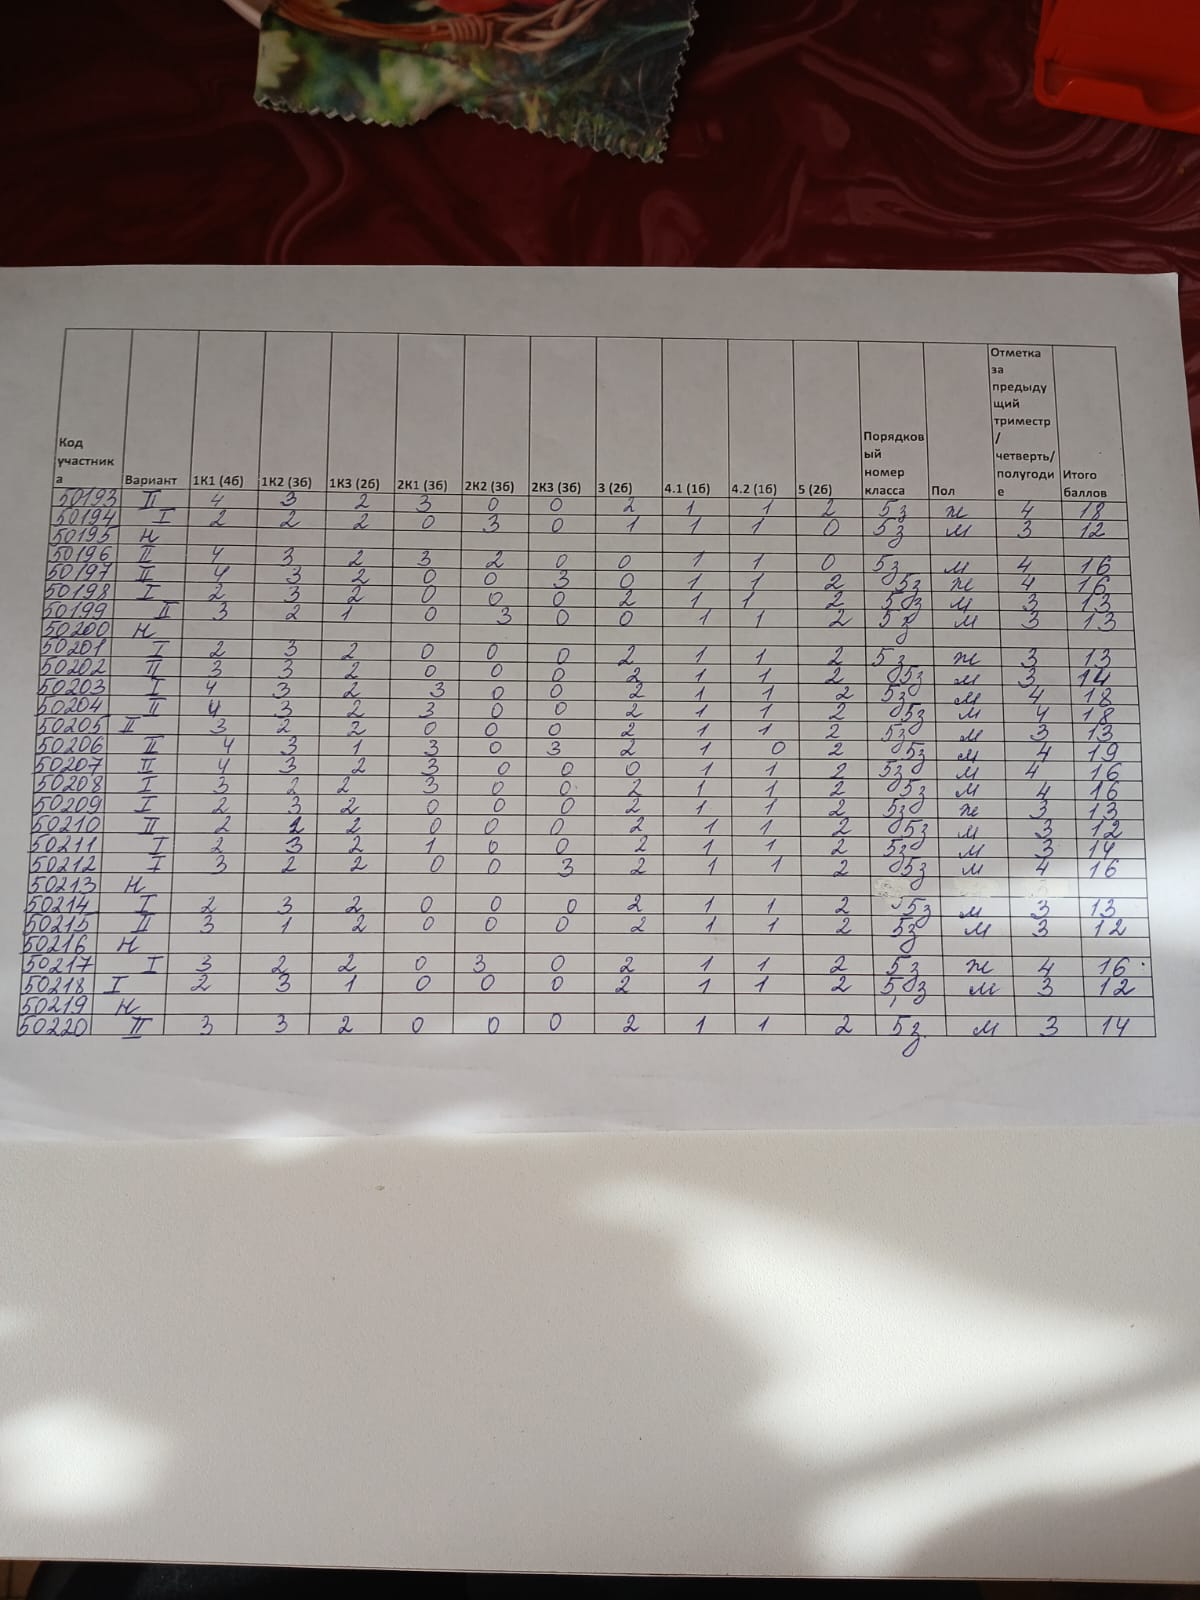 Код участника Вариант 1К1 (4б) 1К2 (3б) 1К3 (2б) 2К1 (3б) 2К2 (3б) 2К3 (3б) 3 (2б) 4.1 (1б) 4.2 (1б) 5 (2б) Порядковый номер класса Пол Отметка за предыдущий триместр/четверть/полугодие Итого баллов
50193 II 4 3 2 3 0 0 2 1 1 2 5з ж 4 18
50194 I 2 2 2 0 3 0 1 1 1 0 5з м 3 12
50195 н
50196 II 4 3 2 3 2 0 0 1 1 0 5з м 4 16
50197 II 4 3 2 0 0 3 0 1 1 2 5з ж 4 16
50198 I 2 3 2 0 0 0 2 1 1 2 5з м 3 13
50199 II 3 2 1 0 3 0 0 1 1 2 5з м 3 13
50200 н
50201 I 2 3 2 0 0 0 2 1 1 2 5з ж 3 13
50202 II 3 3 2 0 0 0 2 1 1 2 5з м 3 14
50203 I 4 3 2 3 0 0 2 1 1 2 5з м 4 18
50204 II 4 3 2 3 0 0 2 1 1 2 5з м 4 18
50205 II 3 2 2 0 0 0 2 1 1 2 5з м 3 13
50206 II 4 3 1 3 0 3 2 1 0 2 5з м 4 19
50207 II 4 3 2 3 0 0 0 1 1 2 5з м 4 16
50208 I 3 2 2 3 0 0 2 1 1 2 5з м 4 16
50209 I 2 3 2 0 0 0 2 1 1 2 5з ж 3 13
50210 II 2 2 2 0 0 0 2 1 1 2 5з м 3 12
50211 I 2 3 2 1 0 0 2 1 1 2 5з м 3 14
50212 I 3 2 2 0 0 3 2 1 1 2 5з м 4 16
50213 н
50214 I 2 3 2 0 0 0 2 1 1 2 5з м 3 13
50215 II 3 1 2 0 0 0 2 1 1 2 5з м 3 12
50216 н
50217 I 3 2 2 0 3 0 2 1 1 2 5з ж 4 16
50218 I 2 3 1 0 0 0 2 1 1 2 5з м 3 12
50219 н
50220 II 3 3 2 0 0 0 2 1 1 2 5з. м 3 14